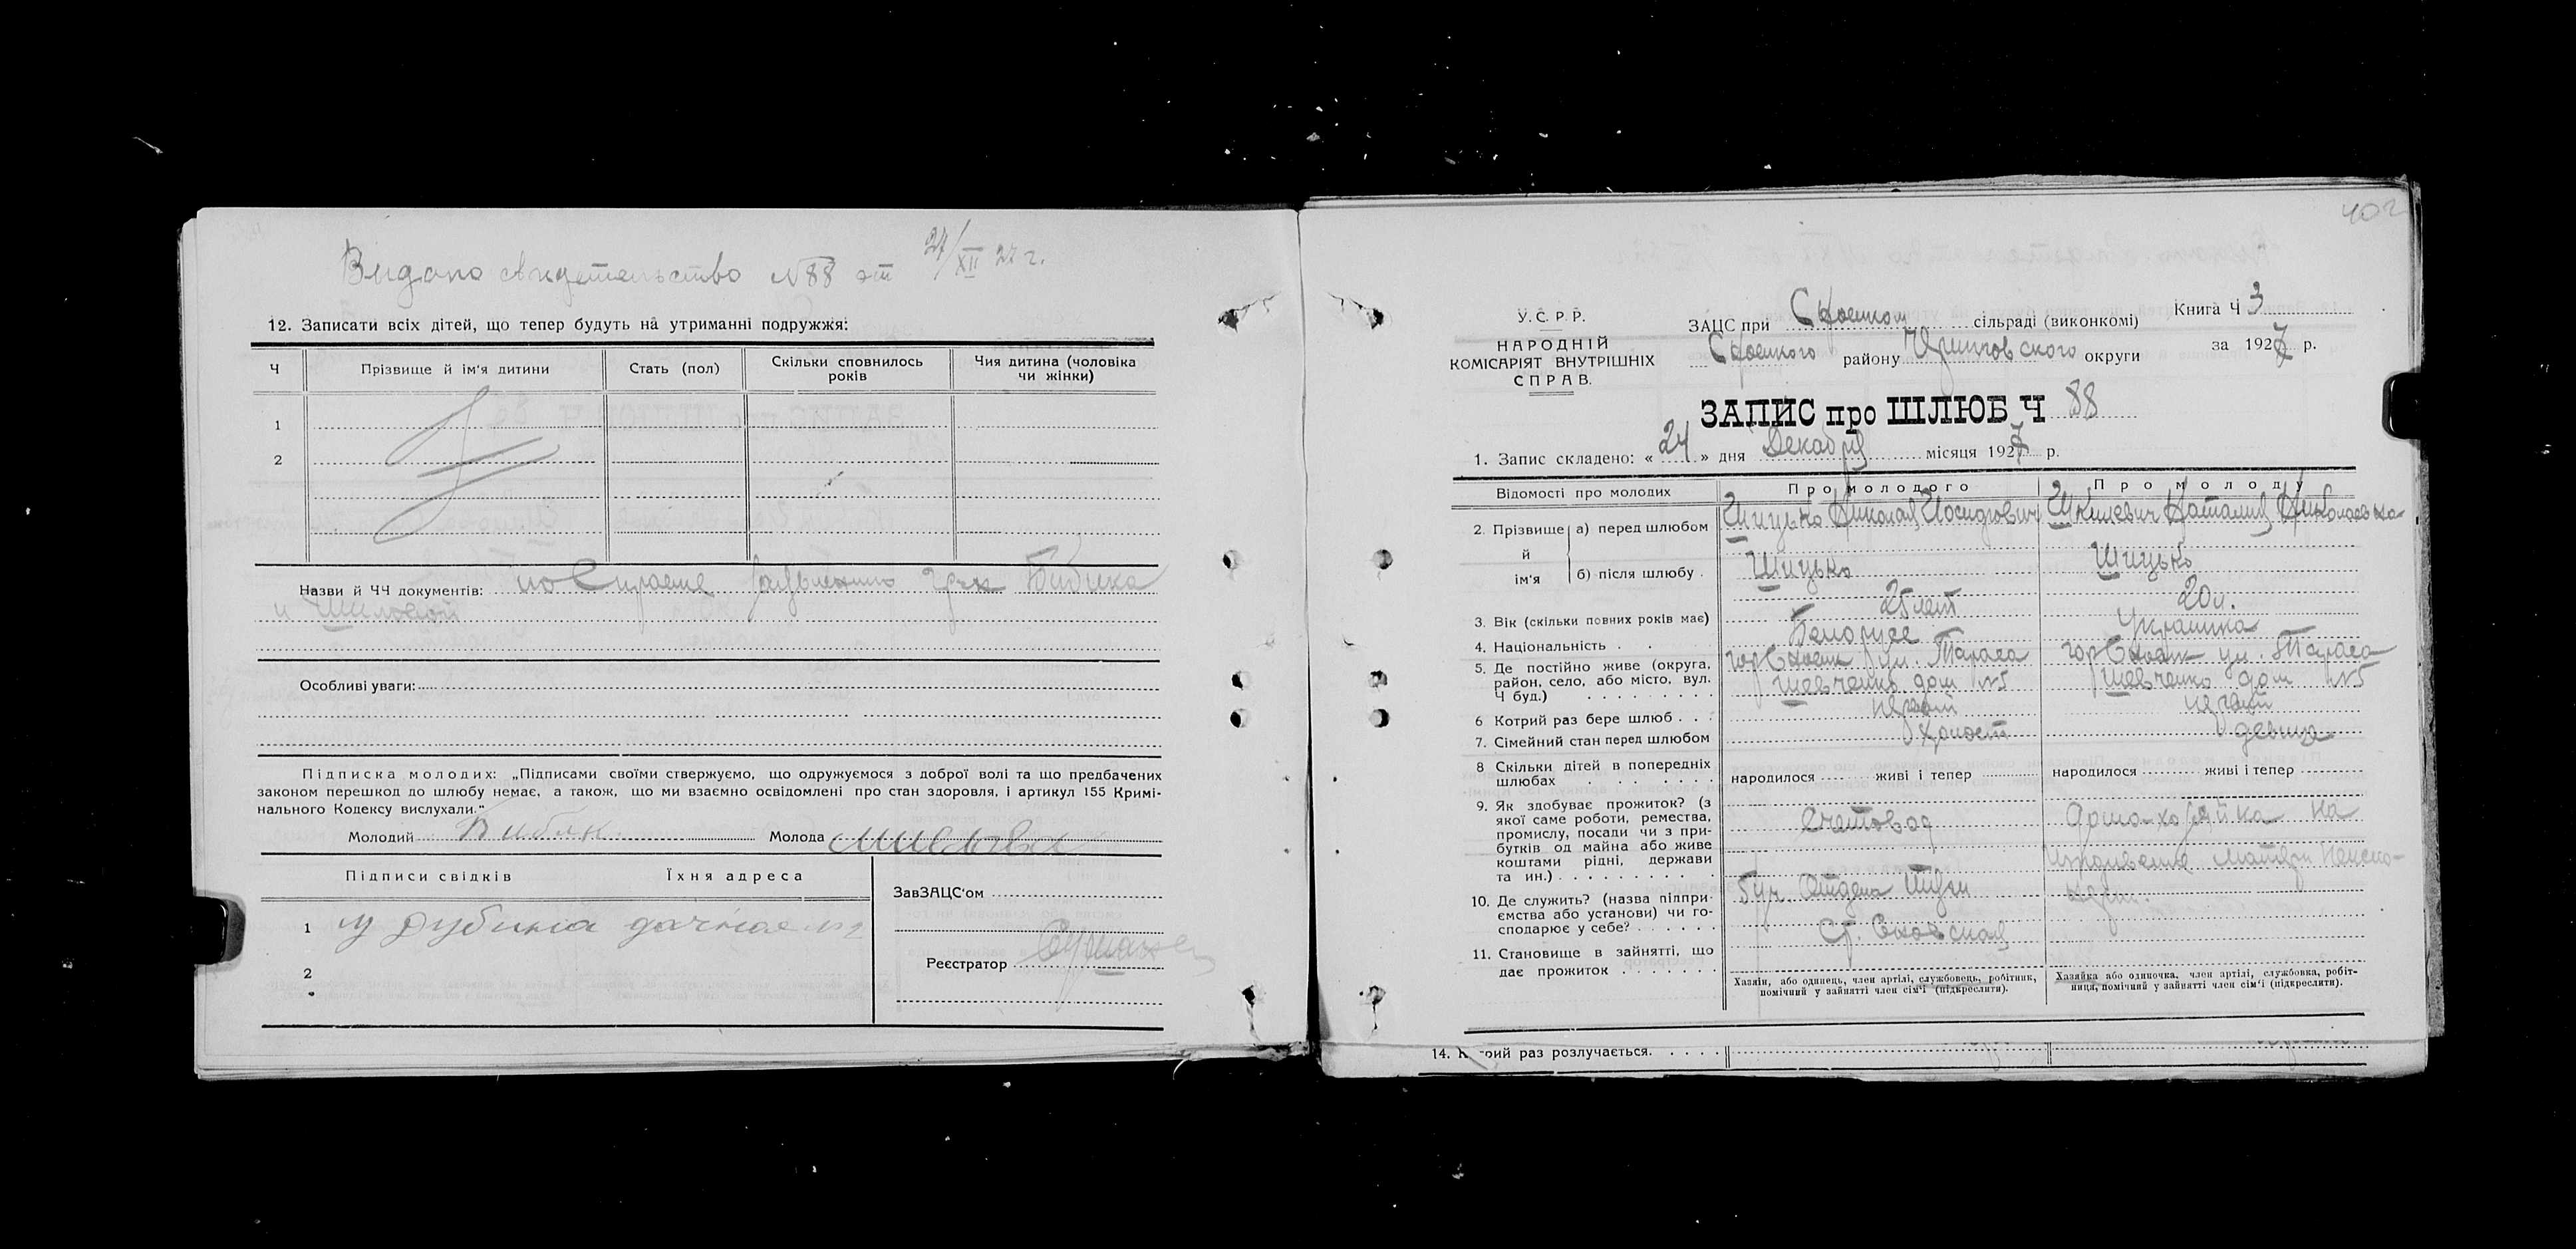 Видано свидетельство №88 от 27/XII 27 г.
12. Записати всіх дітей, що тепер будуть на утриманні подружжя:
Ч Прізвище й ім'я дитини Стать (пол) Скільки сповнилось років Чия дитина (чоловіка чи жінки)
1
2
Назви й ЧЧ документів: Бибика
и Шиловой
Особливі уваги:
Підписка молодих: „Підписами своїми стверджуємо, що одружуємося з доброї волі та що предбачених
законом перешкод до шлюбу немає, а також, що ми взаємно освідомлені про стан здоровля, і артикул 155 Кримі-
нального Кодексу вислухали."
Молодий Бибик Молода
Підписи свідків Їхня адреса
1
2
ЗавЗАЦС'ом
Реєстратор
402
У.С.Р.Р.
НАРОДНІЙ
КОМІСАРІЯТ ВНУТРІШНІХ
СПРАВ.
ЗАЦС при Сновском сільраді (виконкомі)
Сновского району округи
Книга Ч 3
за 1927 р.
ЗАПИС про ШЛЮБ Ч 88
1. Запис складено: « 24 » дня Декабря місяця 1927 р.
Відомості про молодих Про молодого Про молоду
2. Прізвище й ім'я а) перед шлюбом Шицько Николай Иосифович Шкилевич Наталия Николаевна
б) після шлюбу Шицько Шицько
3. Вік (скільки повних років має) 25 лет 20 л.
4. Національність Белорусс Украинка
5. Де постійно живе (округа, район, село, або місто, вул. Ч буд.) гор Сновск ул. Тараса Шевченко дом №5 гор Сновск ул. Тараса Шевченко дом №5
6 Котрий раз бере шлюб первый первый
7. Сімейний стан перед шлюбом Холост девица
8 Скільки дітей в попередніх шлюбах народилося живі і тепер народилося живі і тепер
9. Як здобуває прожиток? (з якої саме роботи, ремества, промислу, посади чи з прибутків од майна або живе коштами рідні, держави та ин.) Счетовод Домо-хозяйка на иждивение матери
10. Де служить? (назва підприємства або установи) чи господарює у себе? ст. Сновская
11. Становище в зайнятті, що дає прожиток
Хазяїн, або одинець, член артілі, службовець, робітник, помічний у зайнятті член сім'ї (підкреслити).
Хазяйка або одиночка, член артілі, службовка, робітниця, помічний у зайнятті член сім'ї (підкреслити).
14. Котрий раз розлучається.